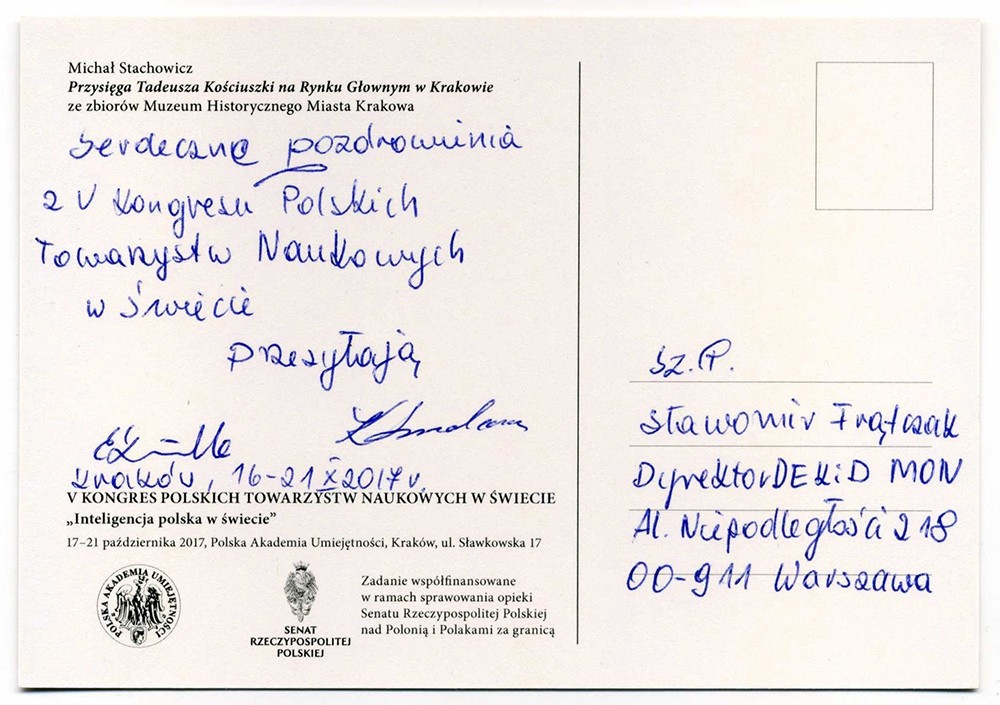 Michał Stachowicz
Przysięga Tadeusza Kościuszki na Rynku Głownym w Krakowie
ze zbiorów Muzeum Historycznego Miasta Krakowa
Serdeczne pozdrowienia
z V Kongresu Polskich
Towarzystw Naukowych
w Świecie
przesyłają
Kraków, 16-21 X 2017r.
V KONGRES POLSKICH TOWARZYSTW NAUKOWYCH W ŚWIECIE
„Inteligencja polska w świecie”
17–21 października 2017, Polska Akademia Umiejętności, Kraków, ul. Sławkowska 17
POLSKA AKADEMIA UMIEJĘTNOŚCI
SENAT
RZECZYPOSPOLITEJ
POLSKIEJ
Zadanie współfinansowane
w ramach sprawowania opieki
Senatu Rzeczypospolitej Polskiej
nad Polonią i Polakami za granicą
Sz. P.
Sławomir Frątczak
Dyrektor DEKiD MON
Al. Niepodległości 218
00-911 Warszawa